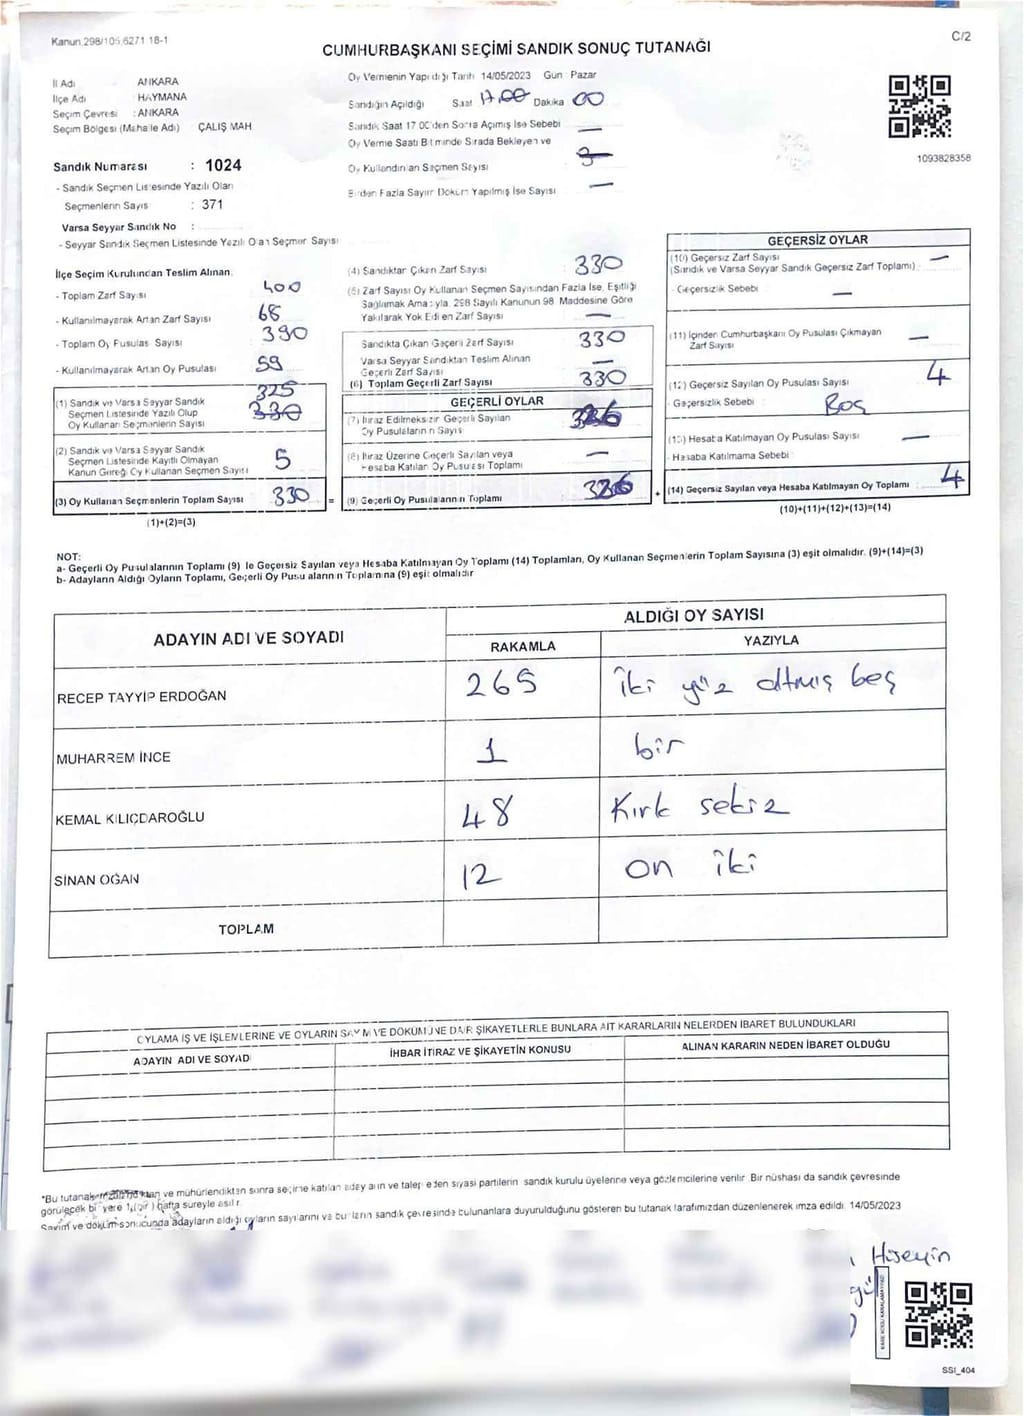 Kanun 298/105,6271 18-1
C/2
CUMHURBAŞKANI SEÇİMİ SANDIK SONUÇ TUTANAĞI
İl Adı ANKARA
İlçe Adı : HAYMANA
Seçim Çevresi : ANKARA
Seçim Bölgesi (Mahalle Adı) ÇALIŞ MAH
Oy Vermenin Yapıldığı Tarih 14/05/2023 Gün Pazar
Sandığın Açıldığı Saat 17.00 Dakika 00
Sandık Saat 17 00'den Sonra Açılmış İse Sebebi —
Oy Verme Saati Bitiminde Sırada Bekleyen ve
Oy Kullandırılan Seçmen Sayısı
Birden Fazla Sayım Döküm Yapılmış İse Sayısı —
1093828358
Sandık Numarası : 1024
- Sandık Seçmen Listesinde Yazılı Olan
Seçmenlerin Sayısı : 371
Varsa Seyyar Sandık No :
- Seyyar Sandık Seçmen Listesinde Yazılı Olan Seçmen Sayısı
İlçe Seçim Kurulundan Teslim Alınan:
- Toplam Zarf Sayısı 400
- Kullanılmayarak Artan Zarf Sayısı 68
- Toplam Oy Pusulası Sayısı 390
- Kullanılmayarak Artan Oy Pusulası 59
325
(1) Sandık ve Varsa Seyyar Sandık
Seçmen Listesinde Yazılı Olup
Oy Kullanan Seçmenlerin Sayısı 330
(2) Sandık ve Varsa Seyyar Sandık
Seçmen Listesinde Kayıtlı Olmayan
Kanun Gereği Oy Kullanan Seçmen Sayısı 5
(3) Oy Kullanan Seçmenlerin Toplam Sayısı 330 =
(1)+(2)=(3)
(4) Sandıktan Çıkan Zarf Sayısı 330
(5) Zarf Sayısı Oy Kullanan Seçmen Sayısından Fazla İse, Eşitliği
Sağlamak Amacıyla, 298 Sayılı Kanunun 98. Maddesine Göre
Yakılarak Yok Edilen Zarf Sayısı —
Sandıkta Çıkan Geçerli Zarf Sayısı 330
Varsa Seyyar Sandıktan Teslim Alınan
Geçerli Zarf Sayısı —
(6) Toplam Geçerli Zarf Sayısı 330
GEÇERLİ OYLAR
(7) İtiraz Edilmeksizin Geçerli Sayılan
Oy Pusulalarının Sayısı 326
(8) İtiraz Üzerine Geçerli Sayılan veya
Hesaba Katılan Oy Pusulası Toplamı —
(9) Geçerli Oy Pusulalarının Toplamı 326 +
GEÇERSİZ OYLAR
(10) Geçersiz Zarf Sayısı
(Sandık ve Varsa Seyyar Sandık Geçersiz Zarf Toplamı) —
- Geçersizlik Sebebi : —
(11) İçinden Cumhurbaşkanı Oy Pusulası Çıkmayan
Zarf Sayısı —
(12) Geçersiz Sayılan Oy Pusulası Sayısı 4
- Geçersizlik Sebebi : Boş
(13) Hesaba Katılmayan Oy Pusulası Sayısı —
- Hesaba Katılmama Sebebi :
(14) Geçersiz Sayılan veya Hesaba Katılmayan Oy Toplamı : 4
(10)+(11)+(12)+(13)=(14)
NOT:
a- Geçerli Oy Pusulalarının Toplamı (9) ile Geçersiz Sayılan veya Hesaba Katılmayan Oy Toplamı (14) Toplamları, Oy Kullanan Seçmenlerin Toplam Sayısına (3) eşit olmalıdır. (9)+(14)=(3)
b- Adayların Aldığı Oyların Toplamı, Geçerli Oy Pusulalarının Toplamına (9) eşit olmalıdır
ADAYIN ADI VE SOYADI
ALDIĞI OY SAYISI
RAKAMLA YAZIYLA
RECEP TAYYİP ERDOĞAN 265 iki yüz altmış beş
MUHARREM İNCE 1 bir
KEMAL KILIÇDAROĞLU 48 Kırk sekiz
SİNAN OĞAN 12 on iki
TOPLAM
OYLAMA İŞ VE İŞLEMLERİNE VE OYLARIN SAYIM VE DÖKÜMÜNE DAİR ŞİKAYETLERLE BUNLARA AİT KARARLARIN NELERDEN İBARET BULUNDUKLARI
ADAYIN ADI VE SOYADI İHBAR İTİRAZ VE ŞİKAYETİN KONUSU ALINAN KARARIN NEDEN İBARET OLDUĞU
*Bu tutanak ve mühürlendikten sonra seçime katılan aday ların ve talep eden siyasi partilerin sandık kurulu üyelerine veya gözlemcilerine verilir. Bir nüshası da sandık çevresinde
görülecek bir yere 1 (bir) hafta süreyle asılır.
Sayım ve döküm sonucunda adayların aldığı oyların sayılarını ve bunların sandık çevresinde bulunanlara duyurulduğunu gösteren bu tutanak tarafımızdan düzenlenerek imza edildi. 14/05/2023
Hüseyin
SSI_404